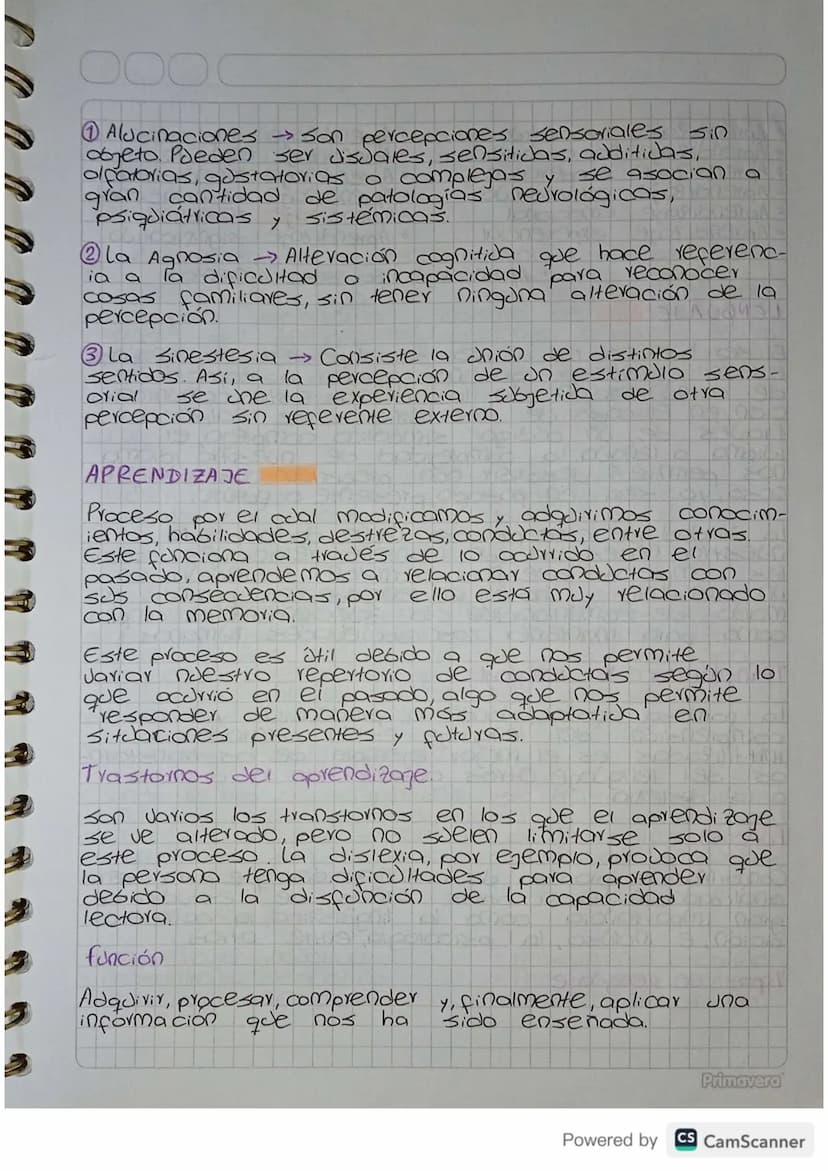 ① Alucinaciones → Son percepciones sensoriales sin
objeto. Pueden ser visuales, sensitivas, auditivas,
olfatorias, gustatorias o complejas y se asocian a
gran cantidad de patologías neurológicas,
psiquiátricas y sistémicas.
② La Agnosia → Alteración cognitiva que hace referenc-
ia a la dificultad o incapacidad para reconocer
cosas familiares, sin tener ninguna alteración de la
percepción.
③ La sinestesia → Consiste la unión de distintos
sentidos. Así, a la percepción de un estímulo sens-
orial se une la experiencia subjetiva de otra
percepción sin referente externo.
APRENDIZAJE
Proceso por el cual modificamos y adquirimos conocim-
ientos, habilidades, destrezas, conductas, entre otras.
Este funciona a través de lo ocurrido en el
pasado, aprendemos a relacionar conductas con
sus consecuencias, por ello está muy relacionado
con la memoria.
Este proceso es útil debido a que nos permite
variar nuestro repertorio de conductas según lo
que ocurrió en el pasado, algo que nos permite
responder de manera más adaptativa en
situaciones presentes y futuras.
Trastornos del aprendizaje.
Son varios los transtornos en los que el aprendizaje
se ve alterado, pero no suelen limitarse solo a
este proceso. La dislexia, por ejemplo, provoca que
la persona tenga dificultades para aprender
debido a la disfunción de la capacidad
lectora.
función
Adquirir, procesar, comprender y, finalmente, aplicar una
información que nos ha sido enseñada.
Primavera
Powered by CS CamScanner